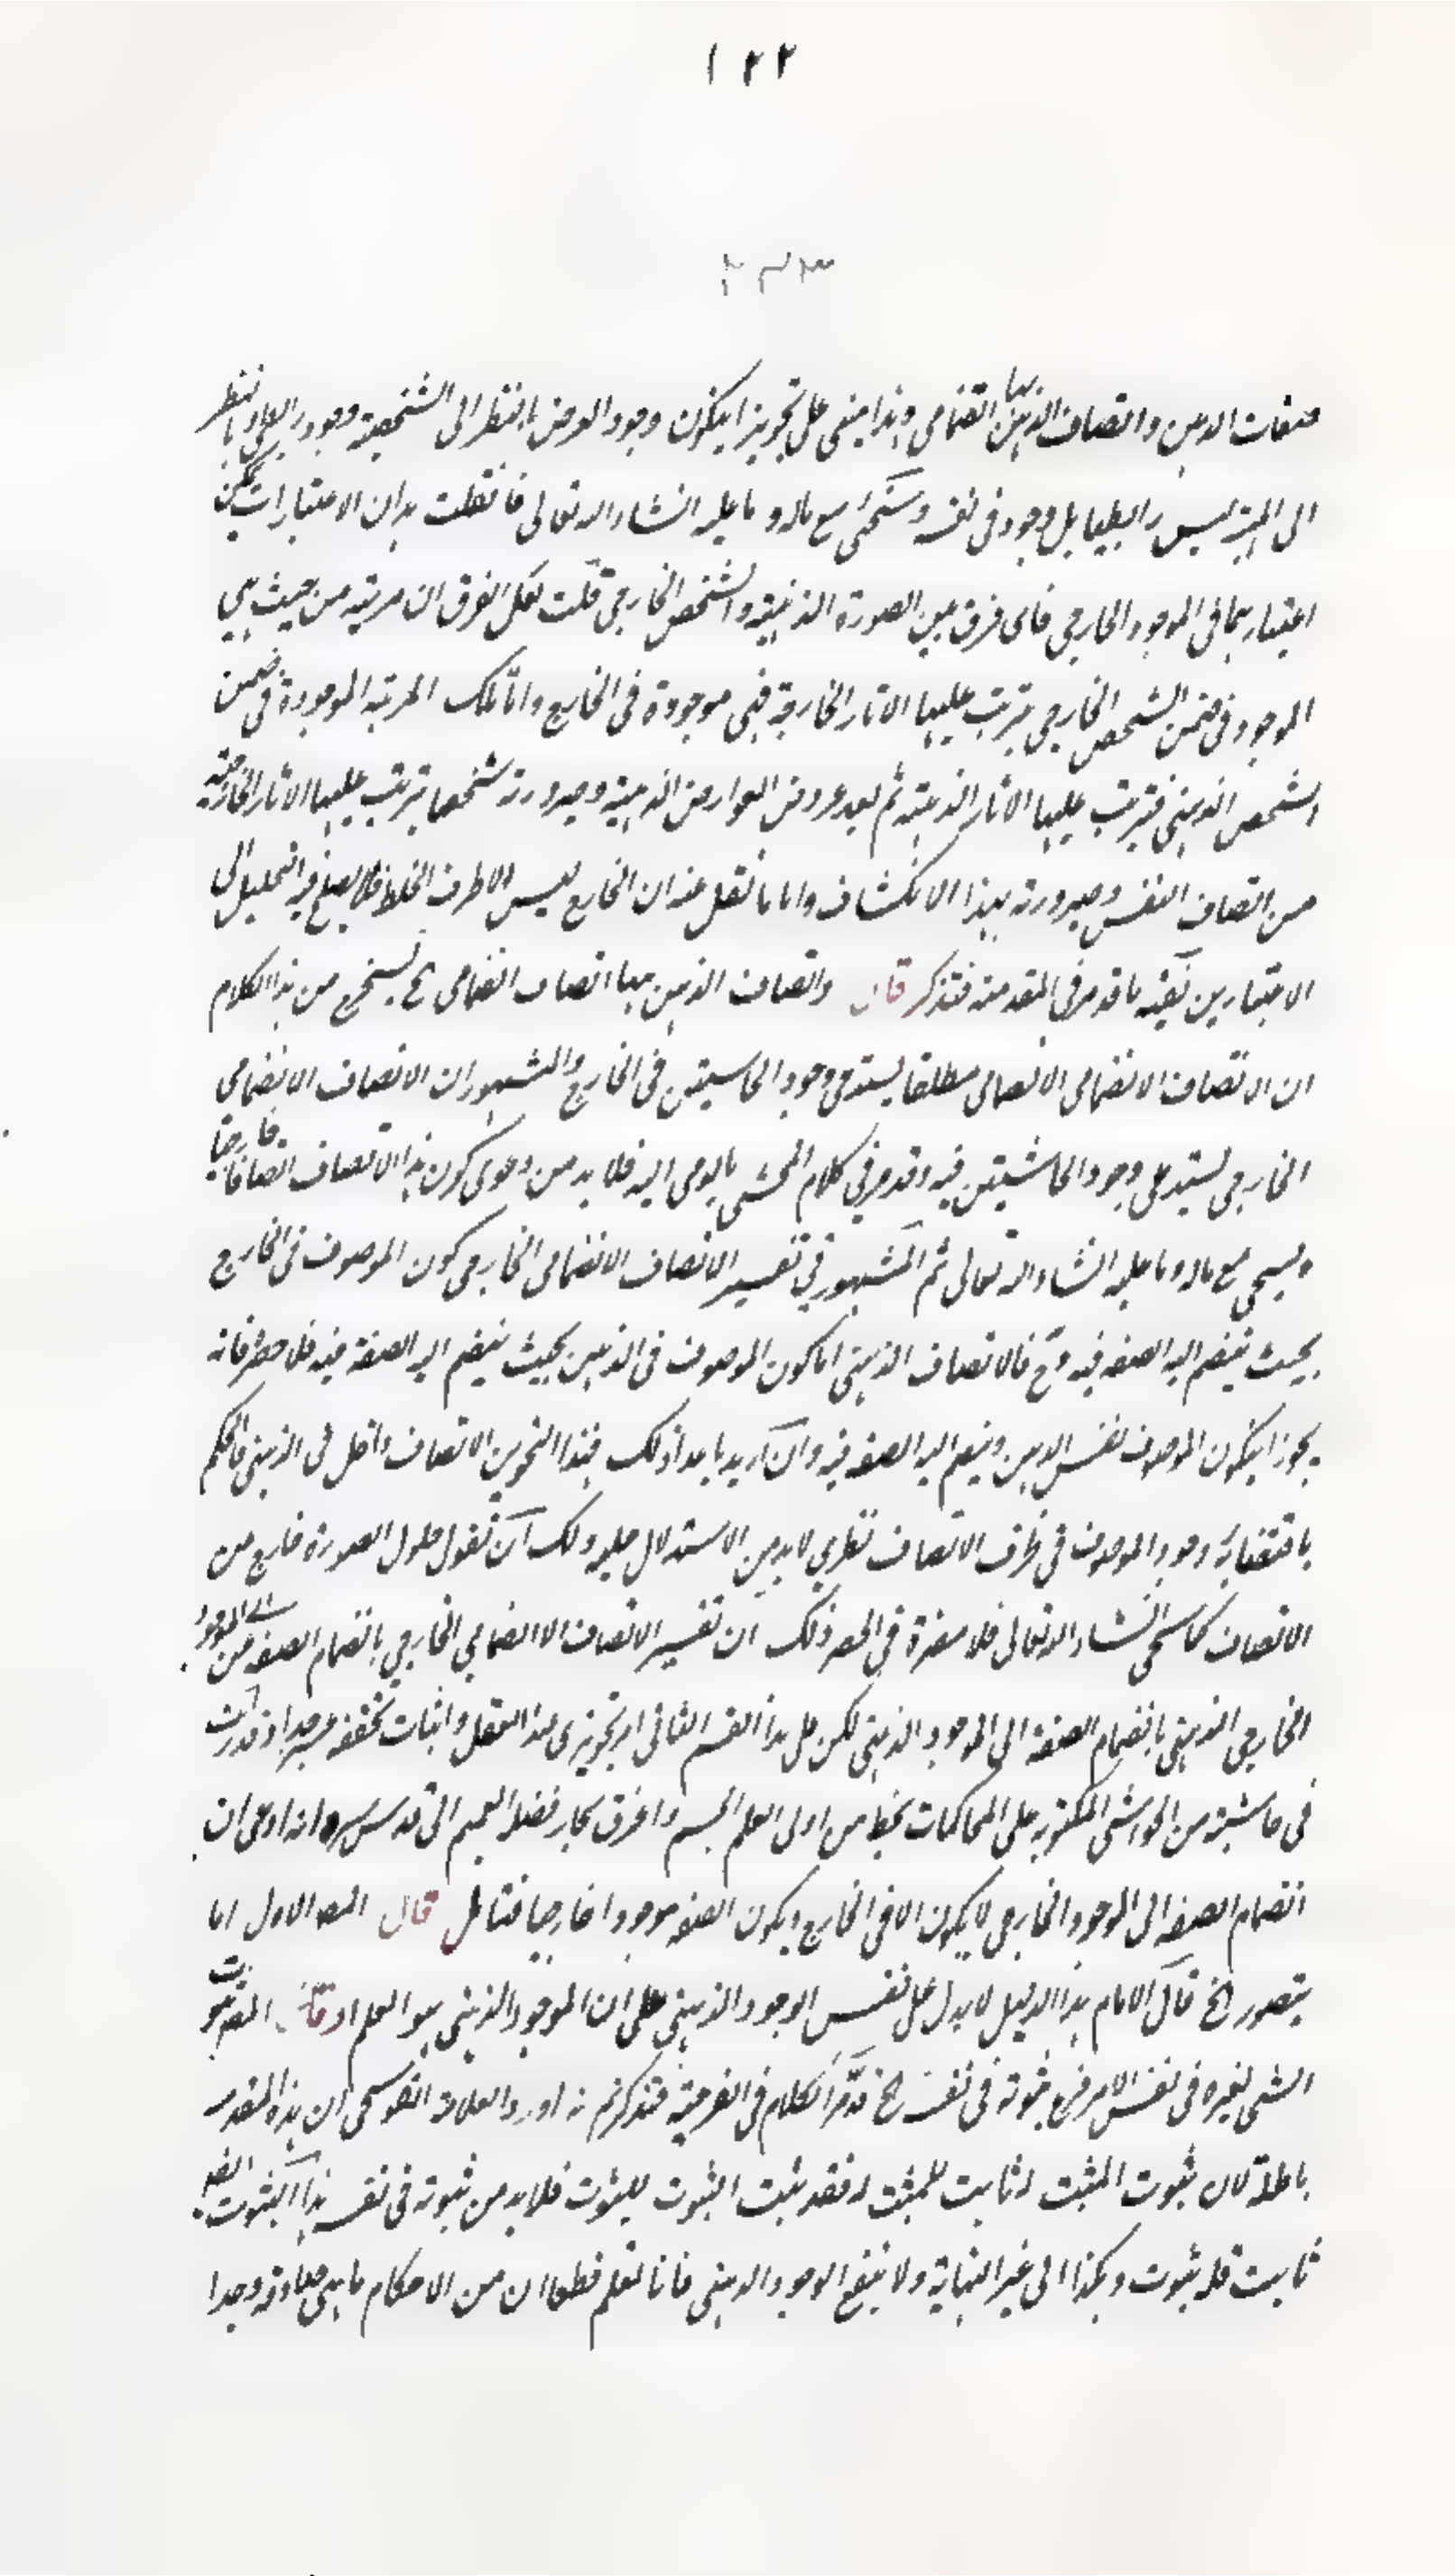 ١٢٢
صفات الذهن واتصاف الذهن بها انضمامي وهذا مبني على تجويز ان يكون وجود العرض بالنظر الى الشخصية وجود رابطي وبالنظر
الى المهية ليس رابطيا بل وجود في نفسه وستجئ مع ماله وما عليه انشاء الله تعالى فان قلت هذان الاعتباران يمكن
اعتبارهما في الموجود الخارجي فاي فرق بين الصورة الذهنية والشخص الخارجي قلت لعل الفرق ان مرتبة من حيث هي
الموجود في ضمن الشخص الخارجي يترتب عليها الاثار الخارجية فهي موجودة في الخارج واما تلك المرتبة الموجودة في ضمن
الشخص الذهني فيترتب عليها الاثار الذهنية ثم بعد عروض العوارض الذهنية وصيرورته شخصا يترتب عليها الاثار الخارجية
من اتصاف النفس وصيرورته مبدا الانكشاف واما ما نقل عنه ان الخارج ليس الا ظرف الخلط فلا يصلح فيه التحليل الى
الاعتبارين ما قد مر في المقدمة فتذكر قال واتصاف الذهن بها اتصاف انضمامي الخ يستخرج من هذا الكلام
ان الاتصاف الانضمامي مطلقا يستدعي وجود الحاشيتين في الخارج والمشهور ان الاتصاف الانضمامي
الخارجي يستدعي وجود الحاشيتين فيه وقد مر في كلام المحشي ما يومي اليه فلا بد من دعوى كون هذا الاتصاف اتصافا خارجيا
وسيجئ مع ماله وما عليه انشاء الله تعالى ثم المشهور في تفسير الاتصاف الانضمامي الخارجي كون الموصوف في الخارج
بحيث ينضم اليه الصفة فيه وح فالاتصاف الذهني اما كون الموصوف في الذهن بحيث ينضم اليه الصفة فيه فلا حصر فانه
يجوز ان يكون الموصوف نفس الذهن وينضم اليه الصفة فيه وان اريد ما عدا ذلك فهذا النحو من الاتصاف داخل في الذهني فالحكم
باقتضائه وجود الموصوف في ظرف الاتصاف نظري لا بد من الاستدلال عليه ولك ان تقول حلول الصورة خارج من
الاتصاف كما سيجئ انشاء الله تعالى فلا مضرة في الحصر ولك ان تفسير الاتصاف الانضمامي الخارجي بانضمام الصفة الى الموجود
الخارجي الذهني بانضمام الصفة الى الموجود الذهني لكن على هذا القسم الثاني امر تجويزي عند العقل واثبات تحققه عسير جدا وقد رايت
في حاشية من الحواشي المكتوبة على المحاكمات بخط من اولى العلم الجسيم واغرق بحار فضله العميم ابي قدس سره انه ادعى ان
انضمام الصفة الى الموجود الخارجي لا يكون الا في الخارج ويكون الصفة موجودا خارجيا فتامل قال المص الاول اما
يتصور الخ قال الامام هذا الدليل لا يدل على نفس الوجود الذهني على ان الموجود الذهني هو العلم او قال المص ثبوت
الشئ لغيره في نفس الامر فرع ثبوته في نفسه الخ قد مر الكلام في الفرعية فتذكر ثم اورد العلامة القوشجي ان هذه المقدمة
باطلة لان ثبوت المثبت له ثابت للمثبت له فقد ثبت الثبوت للثبوت فلا بد من ثبوته في نفسه هذا الثبوت ايضا
ثابت فله ثبوت وهكذا الى غير النهاية ولا ينفع الوجود الذهني فانا نعلم قطعا ان من الاحكام ما هي صادقة وجدا